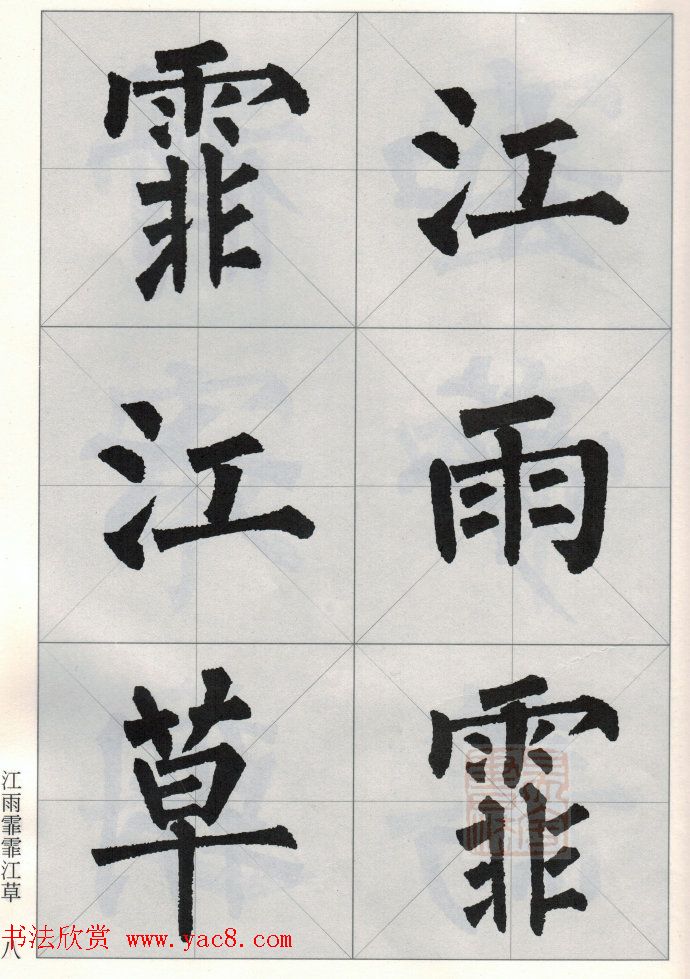 江雨霏
霏江草
江雨霏霏江草
八
书法欣赏 www.yac8.com